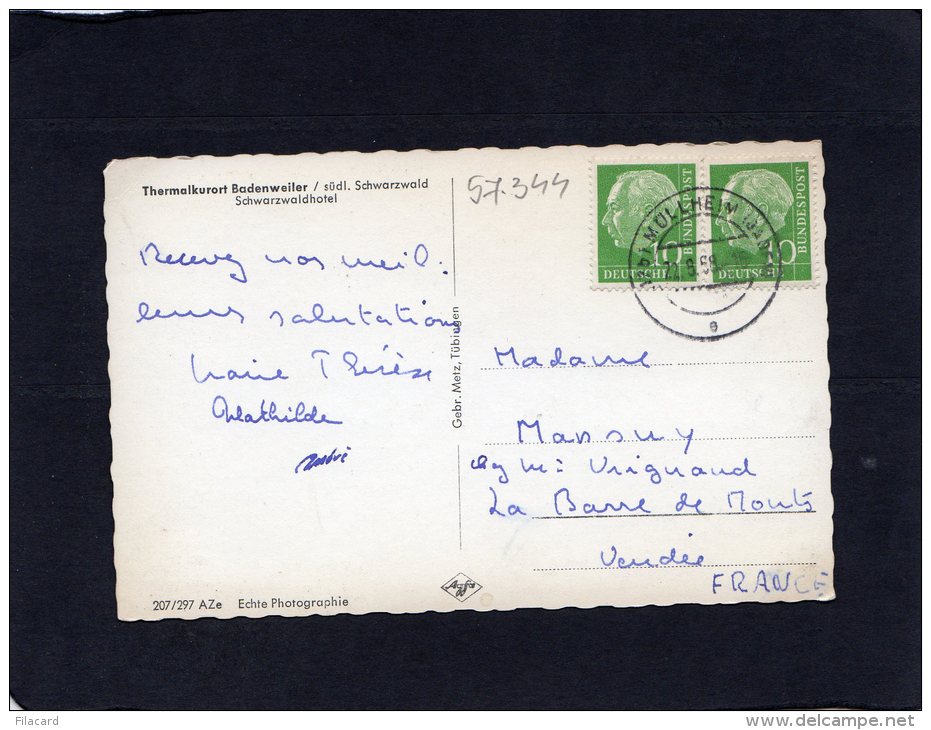 Thermalkurort Badenweiler / südl. Schwarzwald
Schwarzwaldhotel
57.344
Recevez nos meil-
leures salutations
Marie Thérèse
Mathilde
André
207/297 AZe Echte Photographie
Gebr. Metz, Tübingen
Agfa
10
DEUTSCHE
BUNDESPOST
10
DEUTSCHE
BUNDESPOST
MÜLLHEIM (BADEN)
e
Madame
Mansuy
chez Mr Vrignaud
La Barre de Monts
Vendée
FRANCE
Filacard
www.delcampe.net